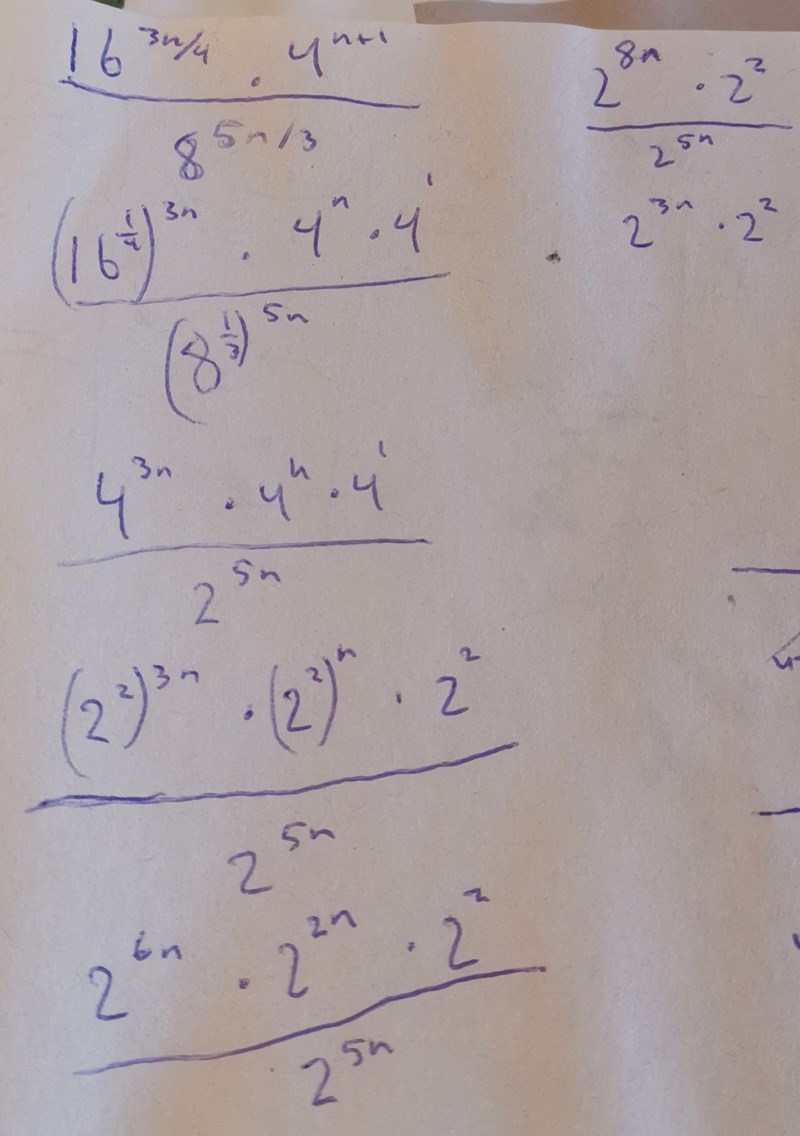 16^{3n/4} · 4^{n+1}
8^{5n/3}
(16^{1/4})^{3n} · 4^n · 4^1
(8^{1/3})^{5n}
4^{3n} · 4^n · 4^1
2^{5n}
(2^2)^{3n} · (2^2)^n · 2^2
2^{5n}
6^{6n} · 2^{2n} · 2^2
2^{5n}
2^{8n} · 2^2
2^{5n}
2^{3n} · 2^2